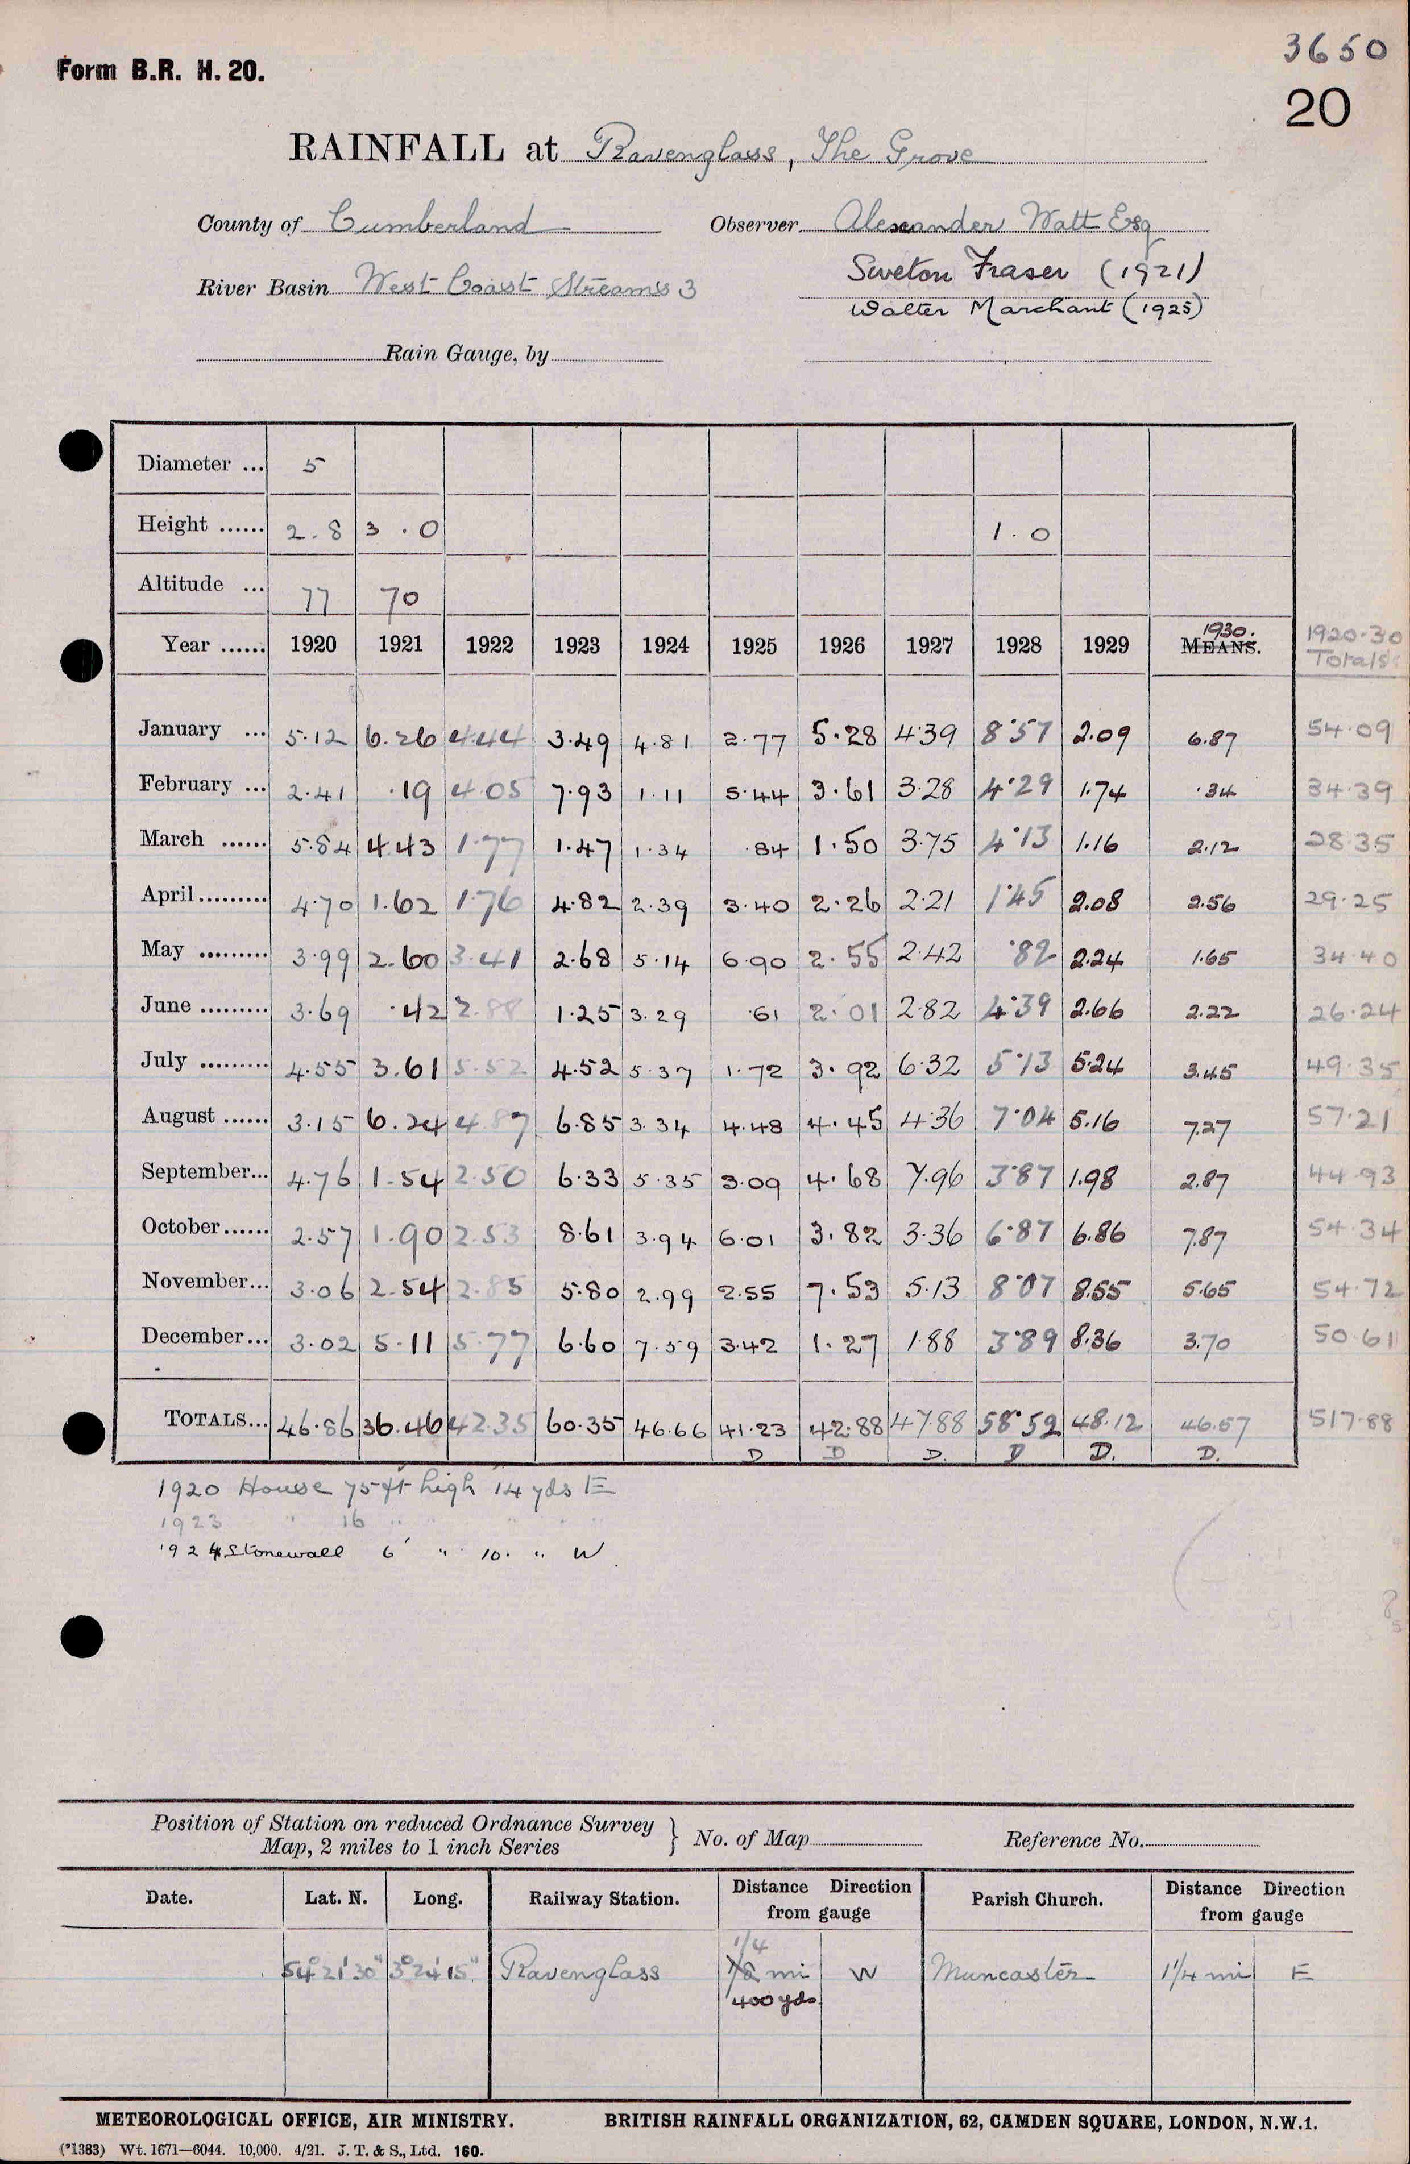 3650
Form B.R. H. 20.
20
RAINFALL at Ravenglass, The Grove
County of Cumberland Observer Alexander Watt Esq
Sweton Fraser (1921)
River Basin West Coast Streams 3
Walter Marchant (1925)
Rain Gauge, by
Diameter ... 5
Height ...... 2.8 3.0 1.0
Altitude ... 77 70
1930.
Year ...... 1920 1921 1922 1923 1924 1925 1926 1927 1928 1929 MEANS. 1920-30 Totals
January ... 5.12 6.26 4.44 3.49 4.81 2.77 5.28 4.39 8.57 2.09 6.87 54.09
February ... 2.41 .19 4.05 7.93 1.11 5.44 3.61 3.28 4.29 1.74 .34 34.39
March ...... 5.84 4.43 1.77 1.47 1.34 .84 1.50 3.75 4.13 1.16 2.12 28.35
April ......... 4.70 1.62 1.76 4.82 2.39 3.40 2.26 2.21 1.45 2.08 2.56 29.25
May ......... 3.99 2.60 3.41 2.68 5.14 6.90 2.55 2.42 .82 2.24 1.65 34.40
June ......... 3.69 .42 2.88 1.25 3.29 .61 2.01 2.82 4.39 2.66 2.22 26.24
July ......... 4.55 3.61 5.52 4.52 5.37 1.72 3.92 6.32 5.13 5.24 3.45 49.35
August ...... 3.15 6.24 4.87 6.85 3.34 4.48 4.45 4.36 7.04 5.16 7.27 57.21
September... 4.76 1.54 2.50 6.33 5.35 3.09 4.68 7.96 3.87 1.98 2.87 44.93
October ...... 2.57 1.90 2.53 8.61 3.94 6.01 3.82 3.36 6.87 6.86 7.87 54.34
November... 3.06 2.54 2.85 5.80 2.99 2.55 7.53 5.13 8.07 8.55 5.65 54.72
December... 3.02 5.11 5.77 6.60 7.59 3.42 1.27 1.88 3.89 8.36 3.70 50.61
TOTALS... 46.86 36.46 42.35 60.35 46.66 41.23 42.88 47.88 58.52 48.12 46.57 517.88
D D D. D D. D.
1920 House 75 ft high 14 yds E
1923 " 16 " " " " "
1924 Stonewall 6' " 10. " W.
Position of Station on reduced Ordnance Survey
Map, 2 miles to 1 inch Series } No. of Map Reference No.
Date. Lat. N. Long. Railway Station. Distance Direction from gauge Parish Church. Distance Direction from gauge
1/4
54° 21' 30" 3° 24' 15" Ravenglass 1/8 mi W Muncaster 1 1/4 mi E
400 yds.
METEOROLOGICAL OFFICE, AIR MINISTRY. BRITISH RAINFALL ORGANIZATION, 62, CAMDEN SQUARE, LONDON, N.W.1.
(*1383) Wt. 1671—6044. 10,000. 4/21. J. T. & S., Ltd. 160.